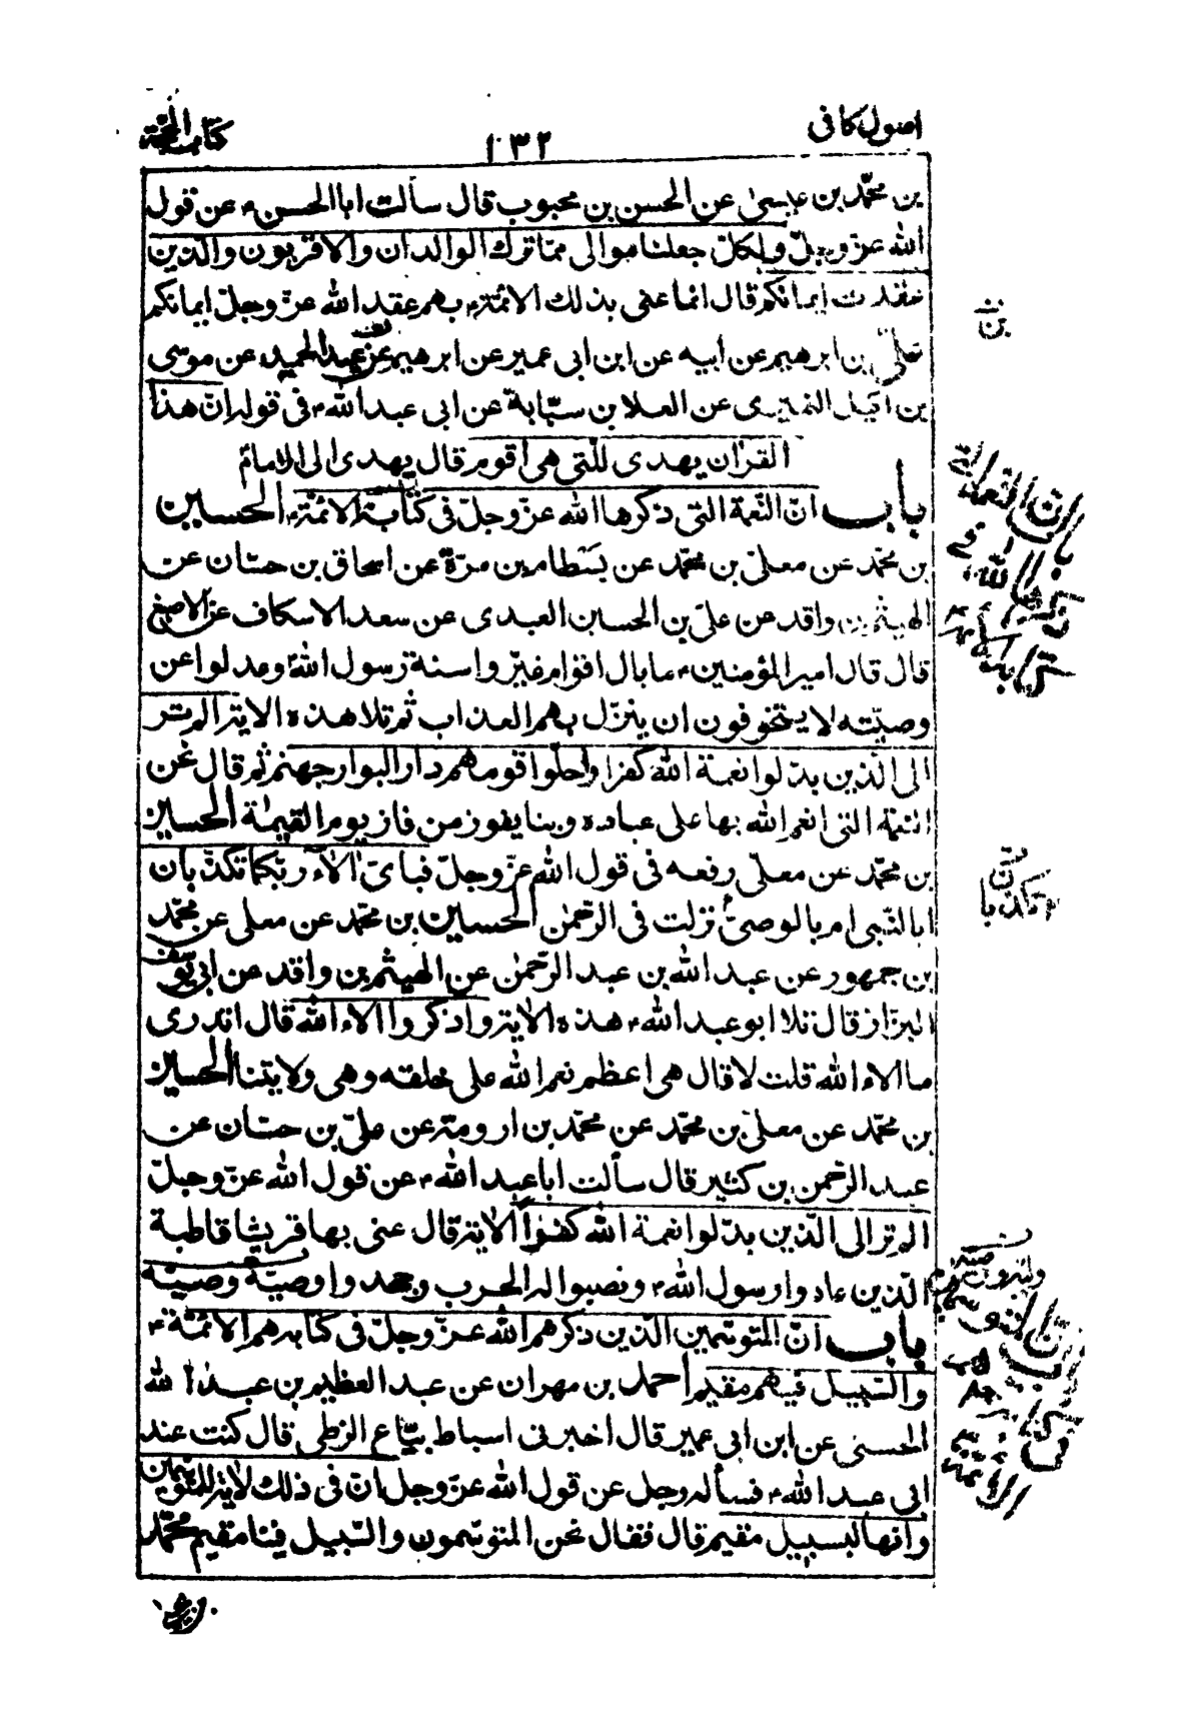 اصول كافى
١٣٢
كتاب الحجة
بن محمّد بن عيسىٰ عن الحسن بن محبوب قال سألت ابا الحسن ؑ عن قول
الله عزّ وجلّ ولكلّ جعلنا موالى ممّا ترك الوالدان والاقربون والّذين
عقدت ايمانكم قال انما عنى بذلك الائمّة ؑ بهم عقد الله عزّ وجلّ ايمانكم
علىّ بن ابرهيم عن ابيه عن ابن ابى عمير عن ابرهيم بن عبد الحميد عن موسى
بن اكيل النميرى عن العلا بن سيّابة عن ابى عبد الله ؑ فى قوله انّ هذا
القرأن يهدى للّتى هى اقوم قال يهدى الى الامام
باب انّ النّعمة التى ذكرها الله عزّ وجلّ فى كتابه الائمّة ؑ الحسين
بن محمّد عن معلىّ بن محمّد عن بسطام بن مرّة عن اسحاق بن حسّان عن
الهيثم بن واقد عن علىّ بن الحسين العبدى عن سعد الاسكاف عن الاصبغ
قال قال امير المؤمنين ؑ ما بال اقوام غيّروا سنة رسول الله ؐ وعدلوا عن
وصيّته لا يتخوفون ان ينزل بهم العذاب ثم تلا هذه الاية الم تر
الى الّذين بدلوا نعمة الله كفرا واحلّوا قومهم دار البوار جهنم ثم قال نحن
النعمة التى انعم الله بها على عباده وبنا يفوز من فاز يوم القيمة الحسين
بن محمّد عن معلىّ رفعه فى قول الله عزّ وجلّ فباىّ الاٰء ربّكما تكذّبان
ابالنّبى ام بالوصىّ نزلت فى الرّحمٰن الحسين بن محمّد عن معلى عن محمّد
بن جمهور عن عبد الله بن عبد الرّحمٰن عن الهيثم بن واقد عن ابى يوسف
البزّاز قال تلا ابو عبد الله ؑ هذه الاية واذكروا الاء الله قال اتدرى
ما الاء الله قلت لا قال هى اعظم نعم الله على خلقه وهى ولايتنا الحسين
بن محمّد عن معلىّ بن محمّد عن محمّد بن اورمة عن علىّ بن حسّان عن
عبد الرّحمن بن كثير قال سألت ابا عبد الله ؑ عن قول الله عزّ وجلّ
الم تر الى الّذين بدّلوا نعمة الله كفراً الاية قال عنى بها قريشا قاطبة
الّذين عادوا رسول الله ؐ ونصبوا له الحرب وجحدوا وصيّة وصيّه
باب انّ المتوسّمين الّذين ذكرهم الله عزّ وجلّ فى كتابه هم الائمّة ؑ
والسّبيل فيهم مقيم احمد بن مهران عن عبد العظيم بن عبد الله
الحسنى عن ابن ابى عمير قال اخبرنى اسباط بيّاع الزطى قال كنت عند
ابى عبد الله ؑ فسأله رجل عن قول الله عزّ وجل انّ فى ذلك لاية للمتوسّمين
وانها لبسبيل مقيم قال فقال نحن المتوسّمون والسّبيل فينا مقيم محمّد
بن
تكذبان